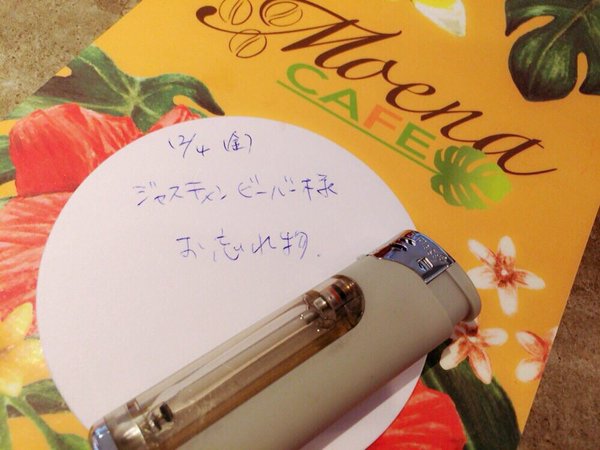 Moena
CAFE
12/4 (金)
ジャスティン ビーバー様
お忘れ物.